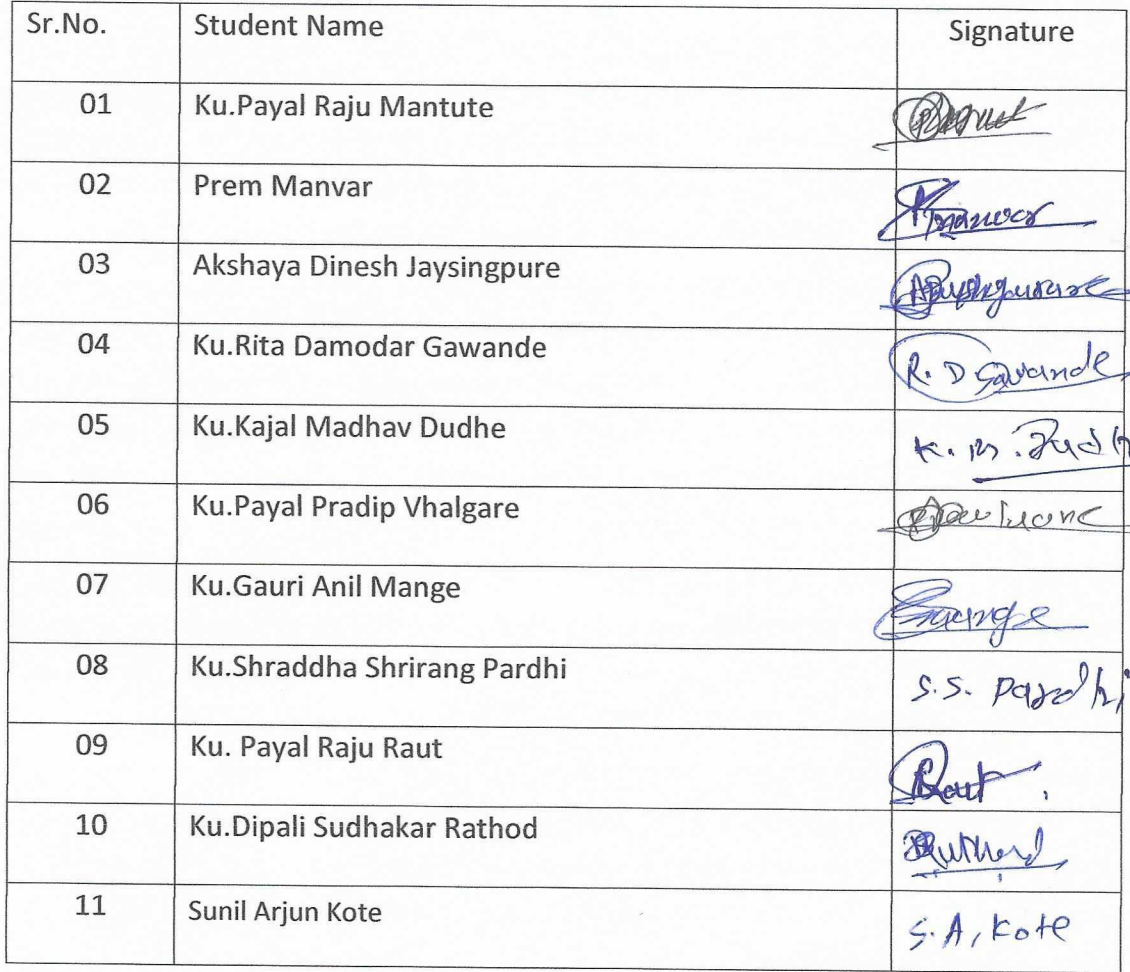 Sr.No. Student Name Signature
01 Ku.Payal Raju Mantute
02 Prem Manvar Pmanvar
03 Akshaya Dinesh Jaysingpure
04 Ku.Rita Damodar Gawande R. D Gawande
05 Ku.Kajal Madhav Dudhe K. M. Dudh
06 Ku.Payal Pradip Vhalgare
07 Ku.Gauri Anil Mange Gmange
08 Ku.Shraddha Shrirang Pardhi S.S. Pardhi
09 Ku. Payal Raju Raut Raut
10 Ku.Dipali Sudhakar Rathod
11 Sunil Arjun Kote S.A, Kote